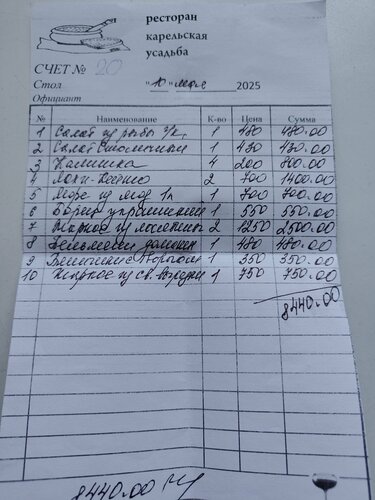 ресторан
карельская
усадьба
СЧЕТ № 20
Стол "10" мая 2025
Официант
№ Наименование К-во Цена Сумма
1 Салат из рыбы 1 480 480.00
2 Салат Столичный 1 430 430.00
3 Калитка 4 200 800.00
4 Лохи-Кейто 2 700 1400.00
5 Морс 1л 1 700 700.00
6 Борщ украинский 1 550 550.00
7 Жаркое из лосятины 2 1250 2500.00
8 Пельмени домашн 1 480 480.00
9 творогом 1 350 350.00
10 Жаркое из св. 1 750 750.00
8440.00
8440.00